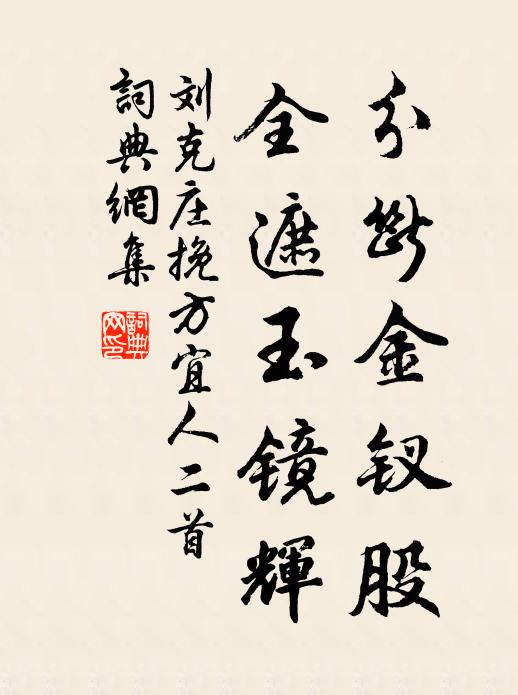 分断金钗股
全遮玉镜輝
刘克庄挽方宜人二首
詞典網集
詞典网印